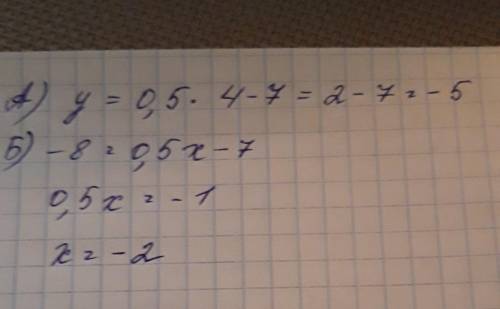 А) y = 0,5 · 4 - 7 = 2 - 7 = - 5
Б) - 8 = 0,5x - 7
0,5x = - 1
x = - 2